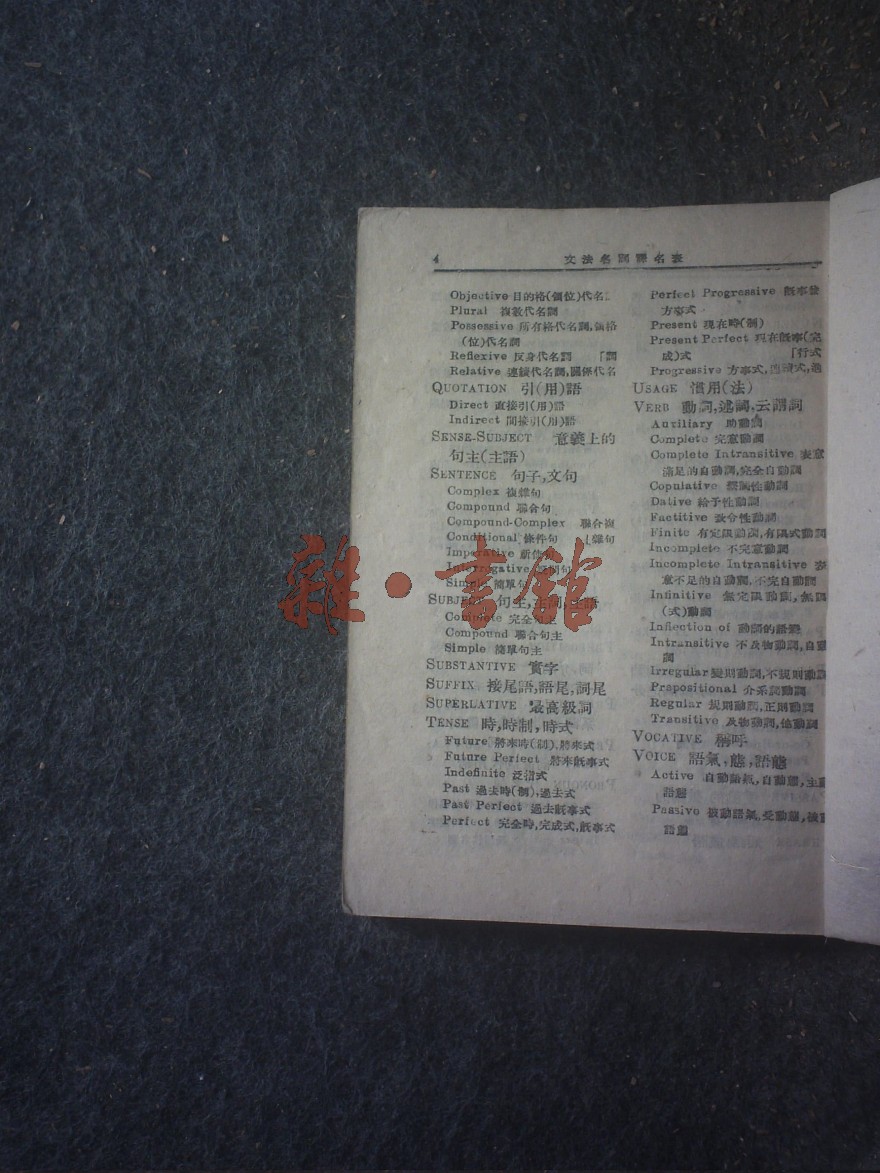 4
文法名詞譯名表
Objective 目的格(領位)代名
Plural 複數代名詞
Possessive 所有格代名詞,領格
(位)代名詞
Reflexive 反身代名詞 「詞
Relative 連續代名詞,關係代名
QUOTATION 引(用)語
Direct 直接引(用)語
Indirect 間接引(用)語
SENSE-SUBJECT 意義上的
句主(主語)
SENTENCE 句子,文句
Complex 複雜句
Compound 聯合句
Compound-Complex 聯合複
Conditional 條件句 「雜句
Imperative
Interrogative
Simple 簡單句
SUBJECT 句主,主詞,主語
Complete 完全句主
Compound 聯合句主
Simple 簡單句主
SUBSTANTIVE 實字
SUFFIX 接尾語,語尾,詞尾
SUPERLATIVE 最高級詞
TENSE 時,時制,時式
Future 將來時(制),將來式
Future Perfect 將來旣事式
Indefinite 泛指式
Past 過去時(制),過去式
Past Perfect 過去旣事式
Perfect 完全時,完成式,旣事式
Perfect Progressive 旣事發
方事式
Present 現在時(制)
Present Perfect 現在旣事(完
成)式 「行式
Progressive 方事式,進
USAGE 慣用(法)
VERB 動詞,述詞,云謂詞
Auxiliary 助動詞
Complete 完意動詞
Complete Intransitive 表意
滿足的自動詞,完全自動詞
Copulative 動詞
Dative 給予性動詞
Factitive 致令性動詞
Finite 有定限動詞,有限式動詞
Incomplete 不完意動詞
Incomplete Intransitive 表
意不足的自動詞,不完自動詞
Infinitive 無定限動詞,無限
(式)動詞
Inflection of 動詞的語變
Intransitive 不及物動詞,自動
詞
Irregular 變則動詞,不規則動詞
Prapositional 介系詞動詞
Regular 規則動詞,正則動詞
Transitive 及物動詞,他動詞
VOCATIVE 稱呼
VOICE 語氣,態,語態
Active 自動語氣,自動態,主動
語態
Passive 被動語氣,受動態,被動
語態
雜·書館